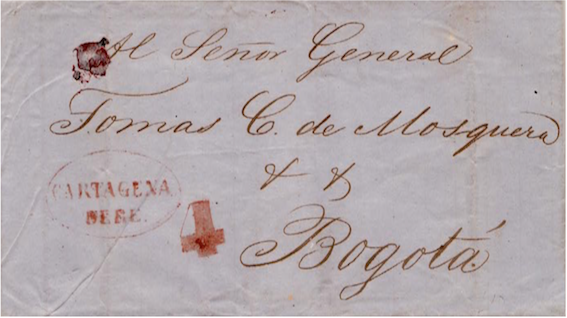 Al Señor General
Tomas C. de Mosquera
& &
Bogotá
CARTAGENA
DEBE.
4